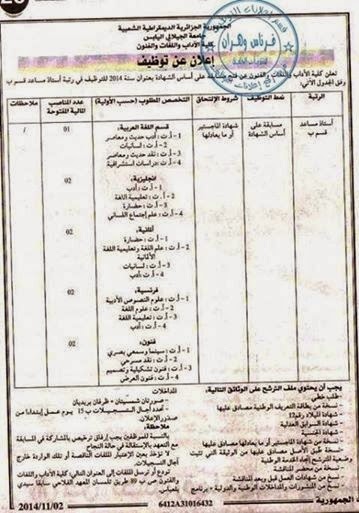 الجمهورية الجزائرية الديمقراطية الشعبية
جامعة الجيلالي اليابس
كلية الآداب واللغات والفنون
إعلان عن توظيف
تعلن كلية الآداب واللغات والفنون عن فتح على أساس الشهادة بعنوان سنة 2014 للتوظيف في رتبة أستاذ مساعد قسم ب
وفق الجدول الآتي:
الرتبة نمط التوظيف شروط الالتحاق التخصص المطلوب (حسب الأولية) عدد المناصب المالية المفتوحة ملاحظات
أستاذ مساعد قسم ب
مسابقة على أساس الشهادة
شهادة الماجستير أو ما يعادلها
قسم اللغة العربية:
01
/
1 - أ.ت: أدب حديث ومعاصر
2 - أ.ت: لسانيات
3 - أ.ت: نقد حديث ومعاصر
4 - أ.ت: دراسات استشراقية
انجليزية:
02
1 - أ.ت: أدب
2 - أ.ت: تعليمية اللغة
3 - أ.ت: حضارة
4 - أ.ت: علم اجتماع اللساني
ألمانية:
02
1 - أ.ت: حضارة
2 - أ.ت: علم اللغة وتعليمية اللغة الألمانية
3 - أ.ت: لسانيات
4 - أ.ت: أدب
فرنسية:
02
1 - أ.ت: علوم النصوص الأدبية
2 - أ.ت: علوم اللغة
3 - أ.ت: تعليمية اللغة
4 - أ.ت: أدب
فنون:
02
1 - أ.ت: سينما وسمعي بصري
2 - أ.ت: نقد مسرحي
3 - أ.ت: فنون تشكيلية وتصميم
4 - أ.ت: فنون العرض
يجب أن يحتوي ملف الترشح على الوثائق التالية:
- طلب خطي
- نسخة من بطاقة التعريف الوطنية مصادق عليها
- شهادة الميلاد رقم 12
- شهادة السوابق العدلية
- شهادة الجنسية
- نسخة من شهادة الماجستير أو ما يعادلها مصادق عليها
- نسخة طبق الأصل مصادق عليها من الوثيقة التي تثبت وضعية المترشح إتجاه الخدمة الوطنية
- نسخة من محضر المناقشة
- نسخة من شهادات العمل قبل وبعد المناقشة
- نسخة من المنشورات والمداخلات الوطنية والدولية + برنامج المداخلات
- صورتان شمسيتان + ظرفان بريديان
- تحدد آجال التسجيلات ب 15 يوم عمل إبتداءا من صدور الإعلان.
ملاحظة:
- بالنسبة للموظفين يجب إرفاق ترخيص بالمشاركة في المسابقة مع التعهد بالاستقالة في حالة النجاح
- لا تؤخذ بعين الإعتبار الملفات الناقصة أو تلك الواردة خارج آجال التسجيلات.
تودع أو ترسل الملفات إلى العنوان التالي: كلية الآداب واللغات والفنون ص ب 89 طريق تلمسان المعهد الفلاحي سابقا سيدي بلعباس.
الجمهورية
6412A31016432
2014/11/02